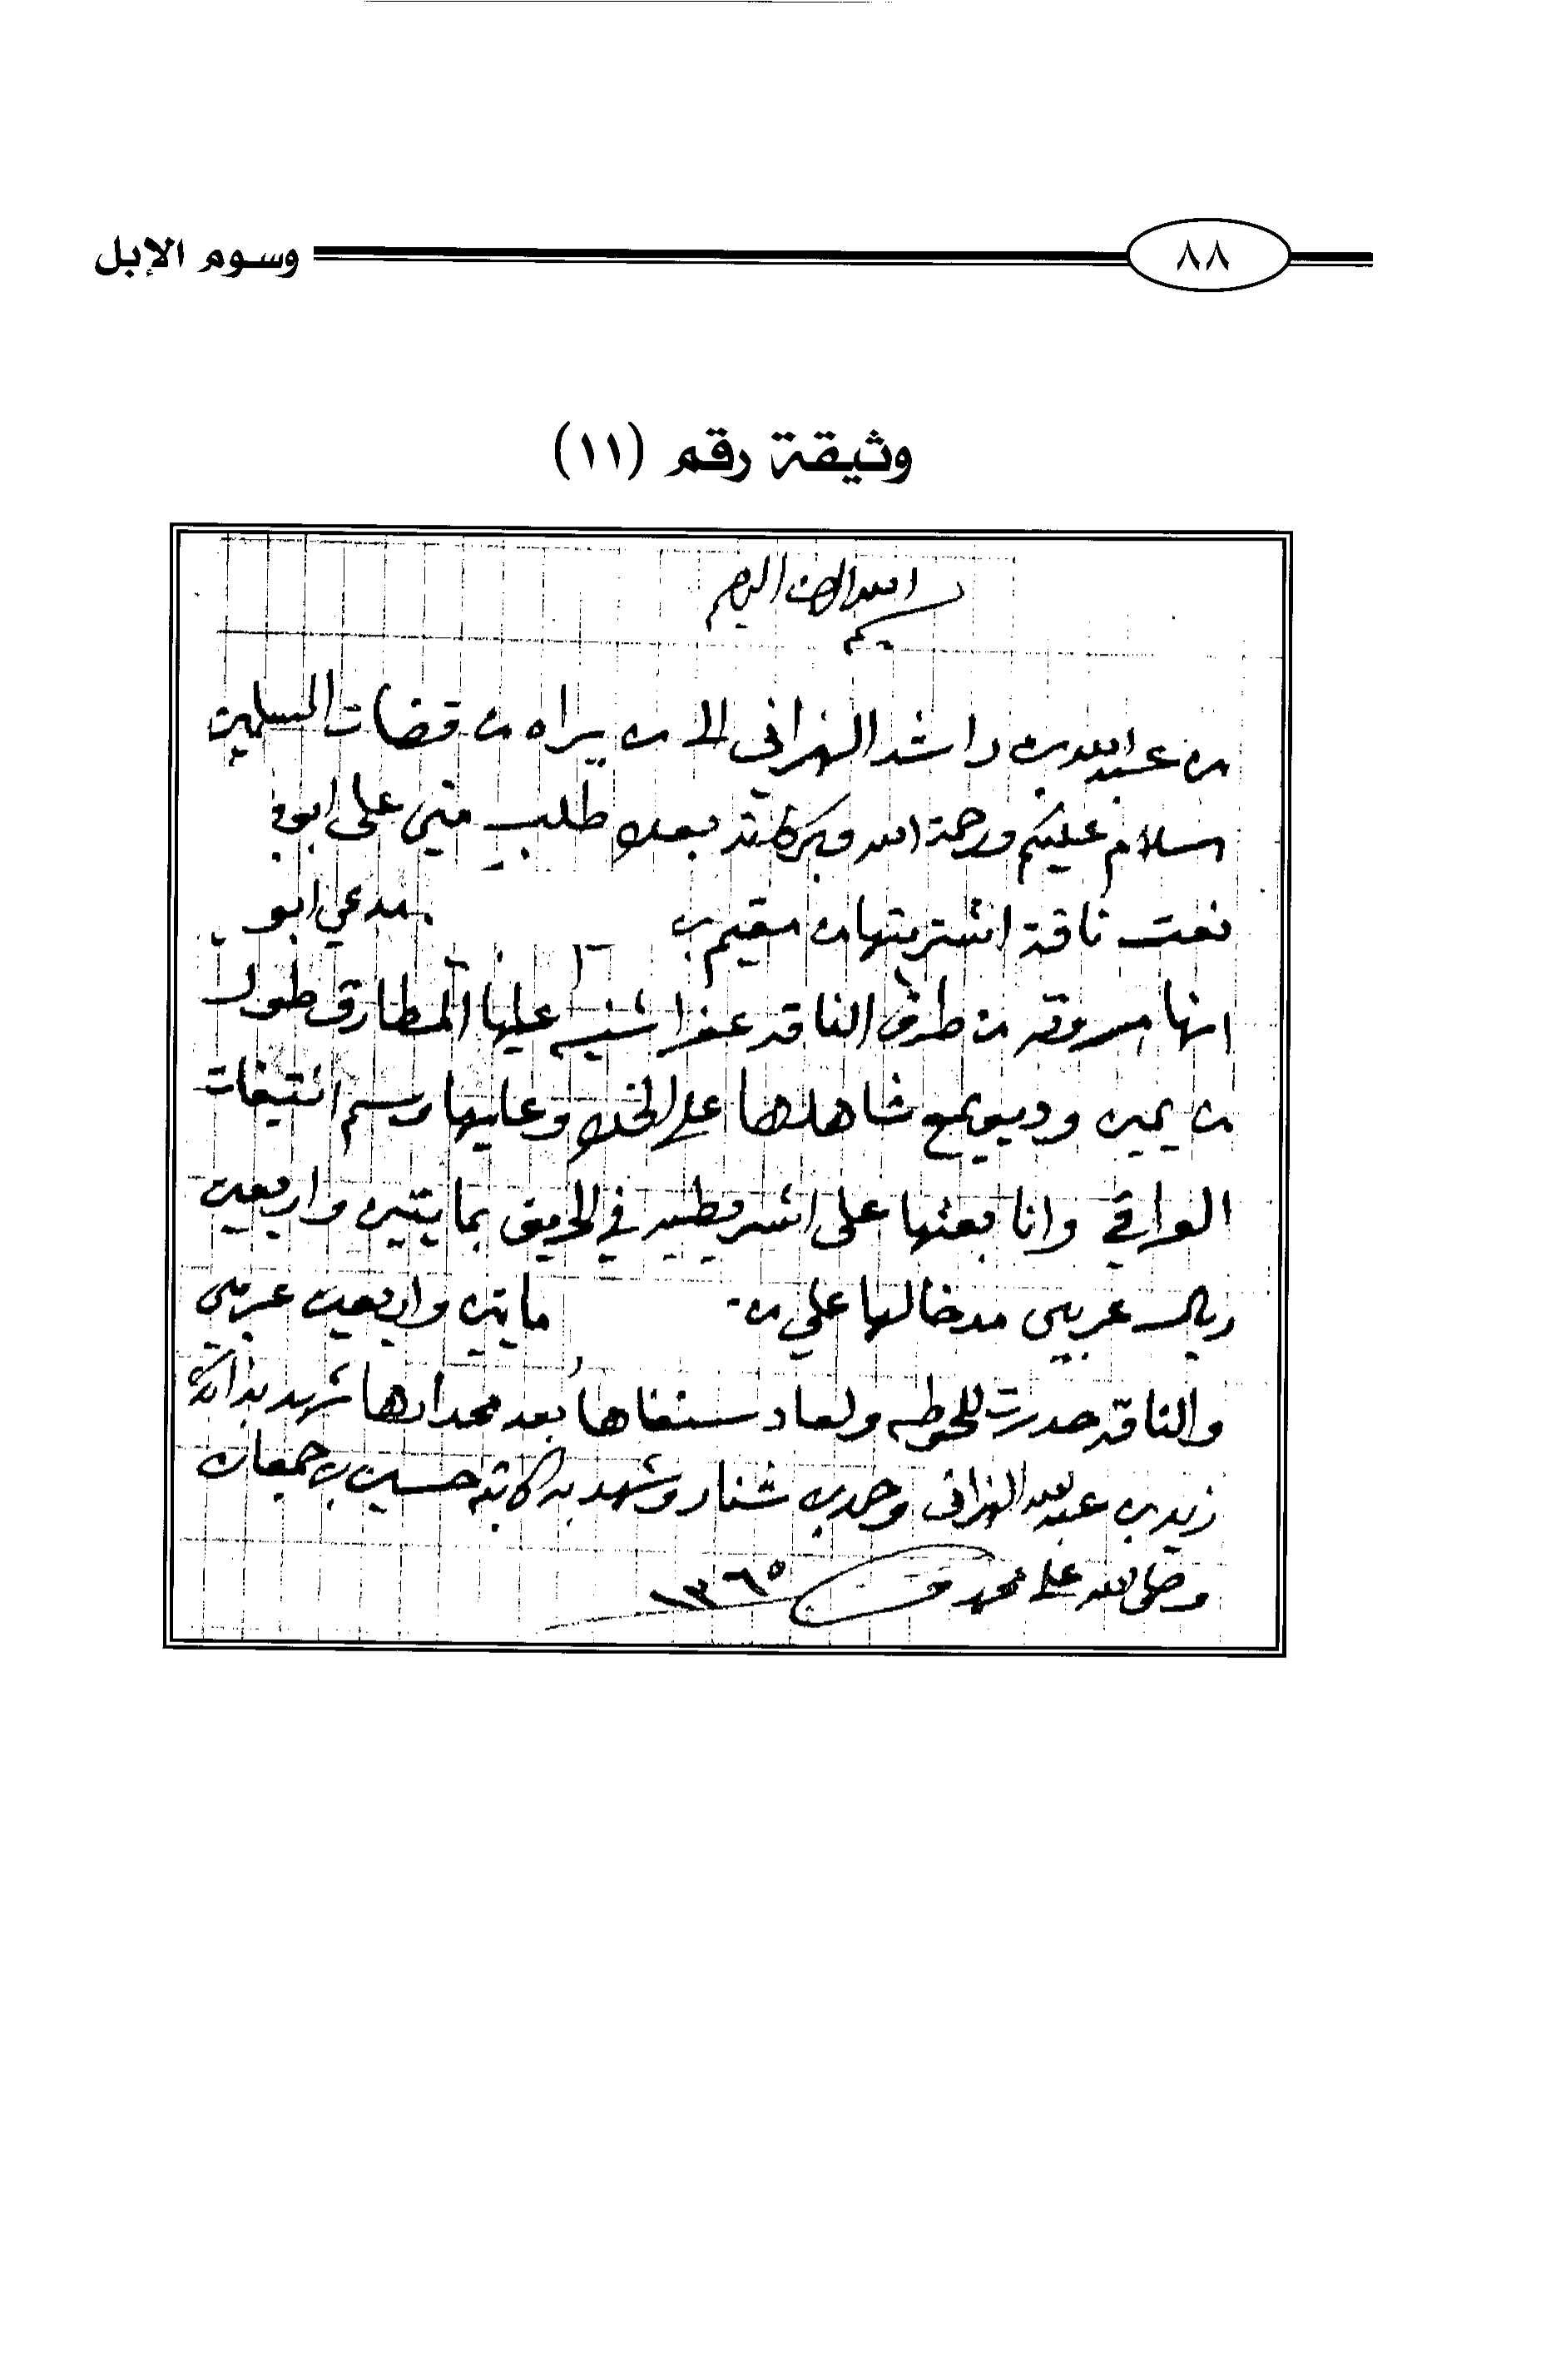 ٨٨
وسوم الإبل
وثيقة رقم (١١)
بسم الله الرحمن الرحيم
من عبدالله بن راشد الهزاني الى من يراه من قضات المسلمين
سلام عليكم ورحمة الله وبركاته بعد طلب مني على ابو
نعت ناقة اشتريتها من مقيم بن يدعي ابو
انها مسروقه من طرف الناقه عفرا عليها المطارق طوال
من يمين شاهدها على الخد وعليها وسم
وانا بعتها على في الحريق بمايتين واربعين
ريال عربي مدخالها علي من مايتين واربعين عربي
والناقه حدرت للحوطه ولعاد بعد محدارها شهد بذالك
زيد بن عبدالله الهزاني بن شنار وشهد به كاتبه حسين بن جمعان
وصلى الله على محمد ١٣٦٥